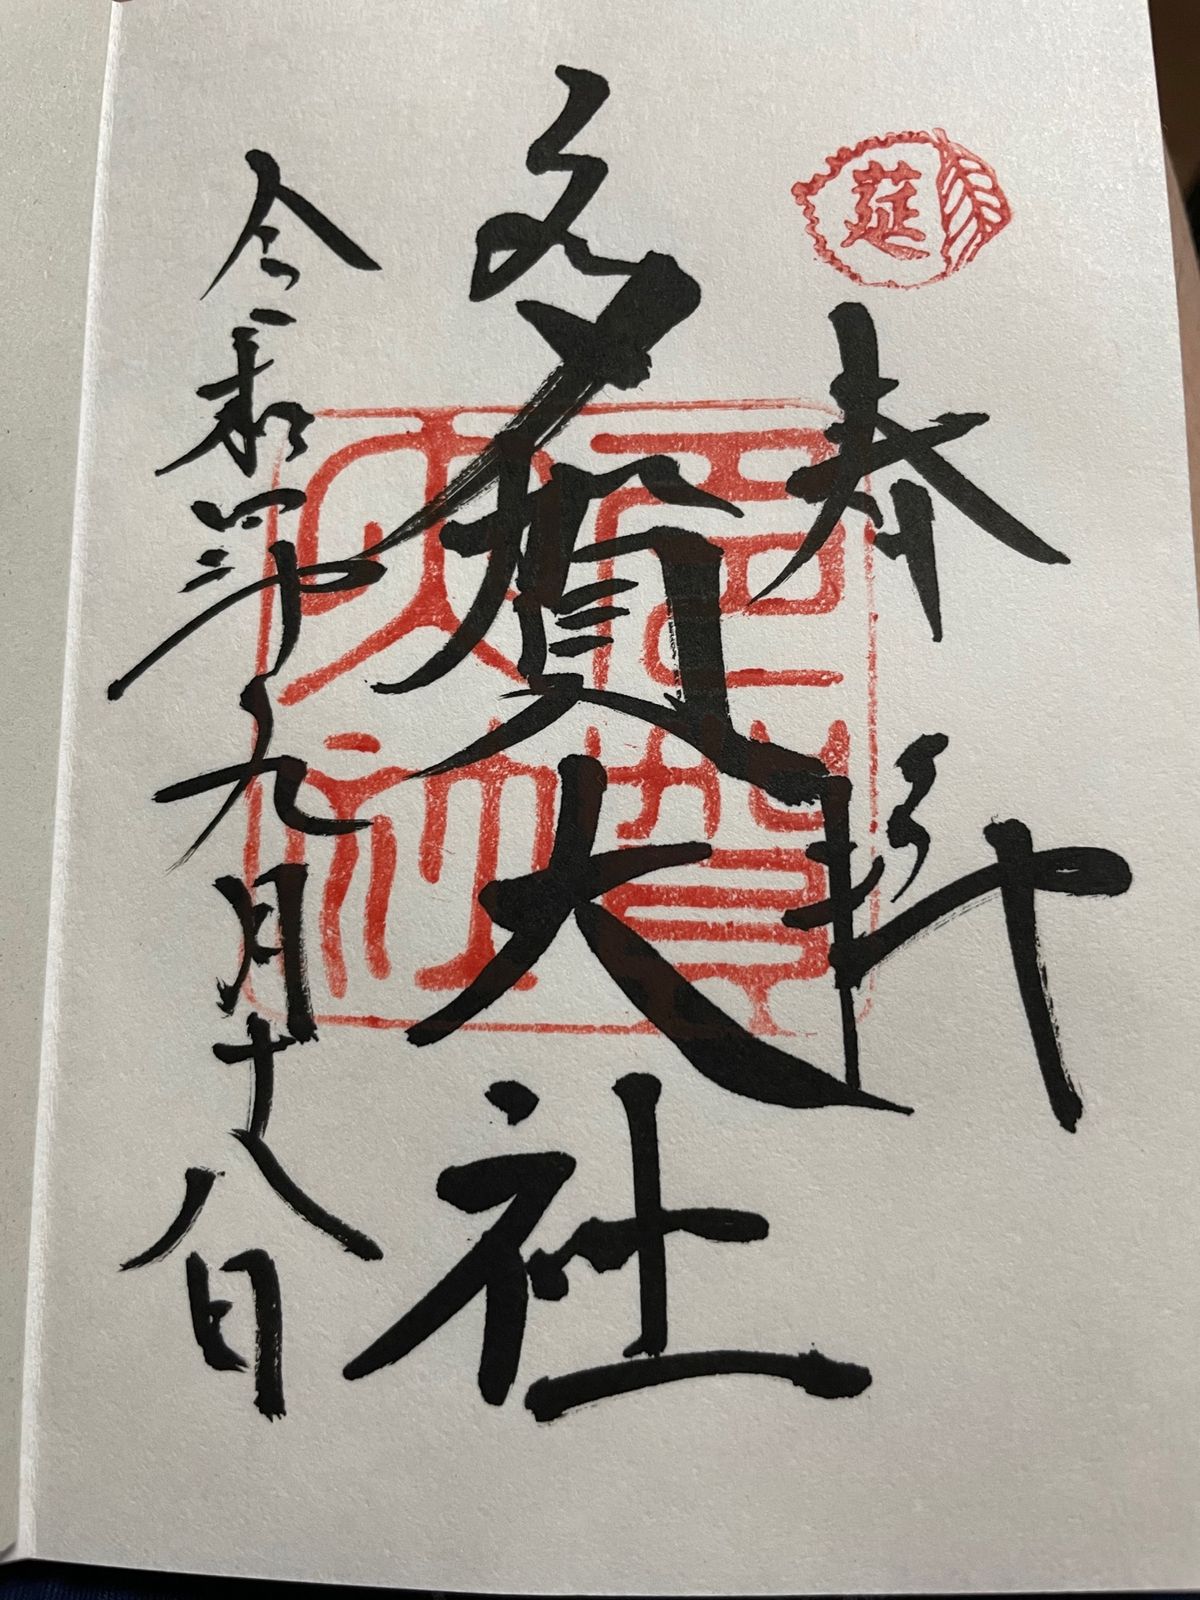 莚
奉拝
多賀大社
多賀大社
令和四年九月十八日